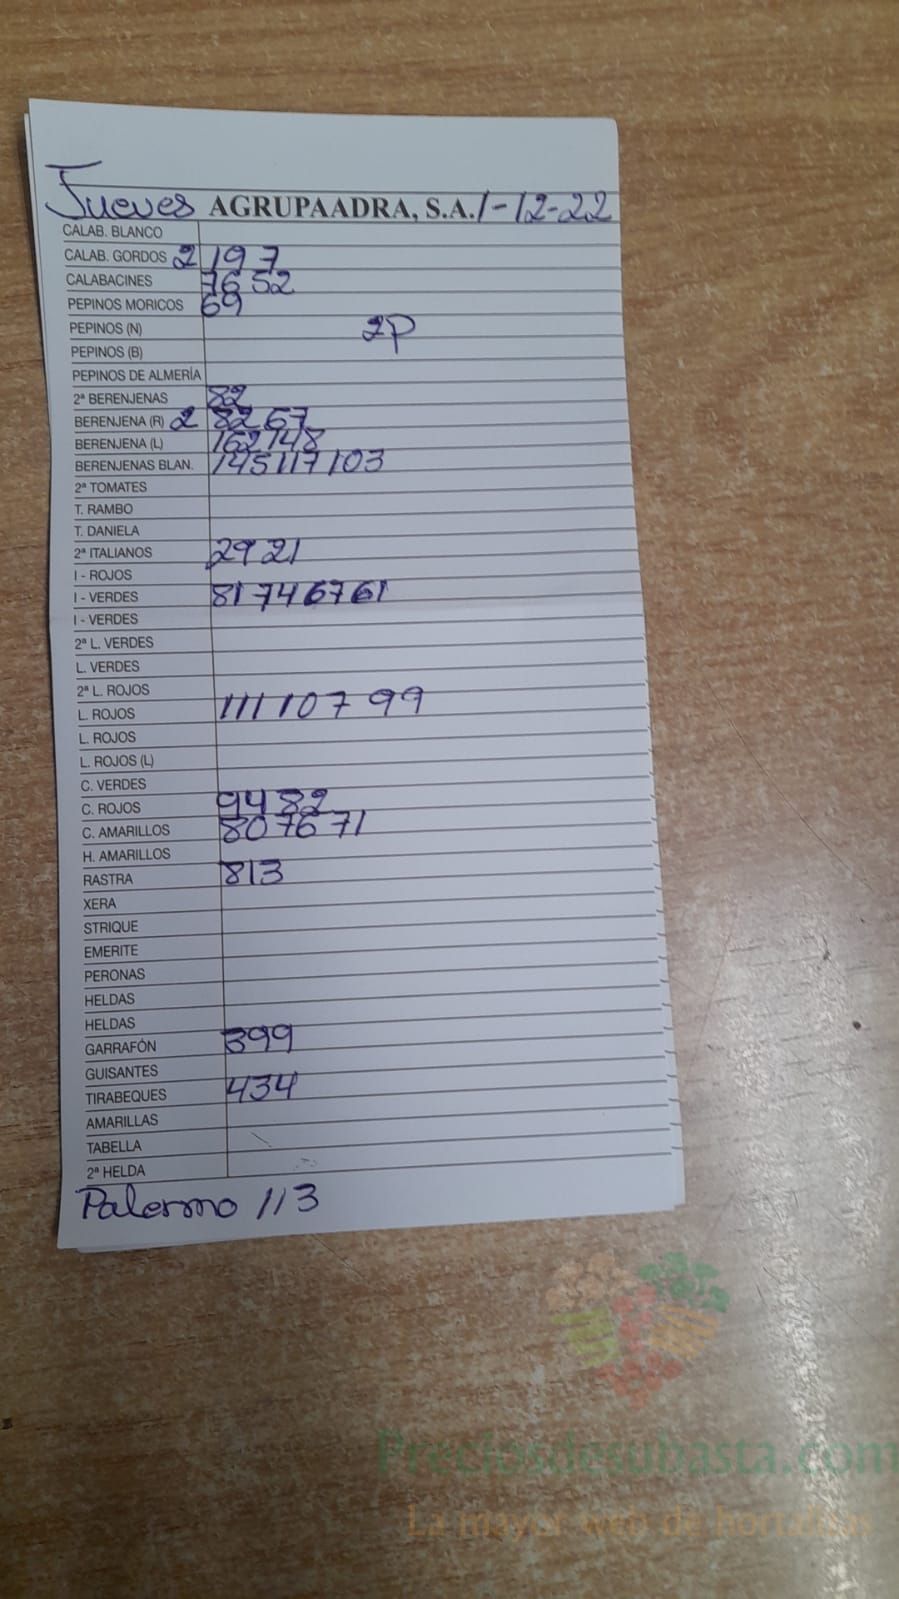 Jueves AGRUPAADRA, S.A. 1-12-22
CALAB. BLANCO
CALAB. GORDOS 2 19 7
CALABACINES 76 52
PEPINOS MORICOS 69
PEPINOS (N) 2P
PEPINOS (B)
PEPINOS DE ALMERÍA
2ª BERENJENAS 82
BERENJENA (R) 2 82 67
BERENJENA (L) 162 148
BERENJENAS BLAN. 145 117 103
2ª TOMATES
T. RAMBO
T. DANIELA
2ª ITALIANOS 29 21
I - ROJOS
I - VERDES 81 74 67 61
I - VERDES
2ª L. VERDES
L. VERDES
2ª L. ROJOS
L. ROJOS 111 107 99
L. ROJOS
L. ROJOS (L)
C. VERDES
C. ROJOS 94 82
C. AMARILLOS 80 76 71
H. AMARILLOS
RASTRA 813
XERA
STRIQUE
EMERITE
PERONAS
HELDAS
HELDAS
GARRAFÓN 399
GUISANTES
TIRABEQUES 434
AMARILLAS
TABELLA
2ª HELDA
Palermo 113
Preciosdesubasta.com
La mayor web de hortalizas